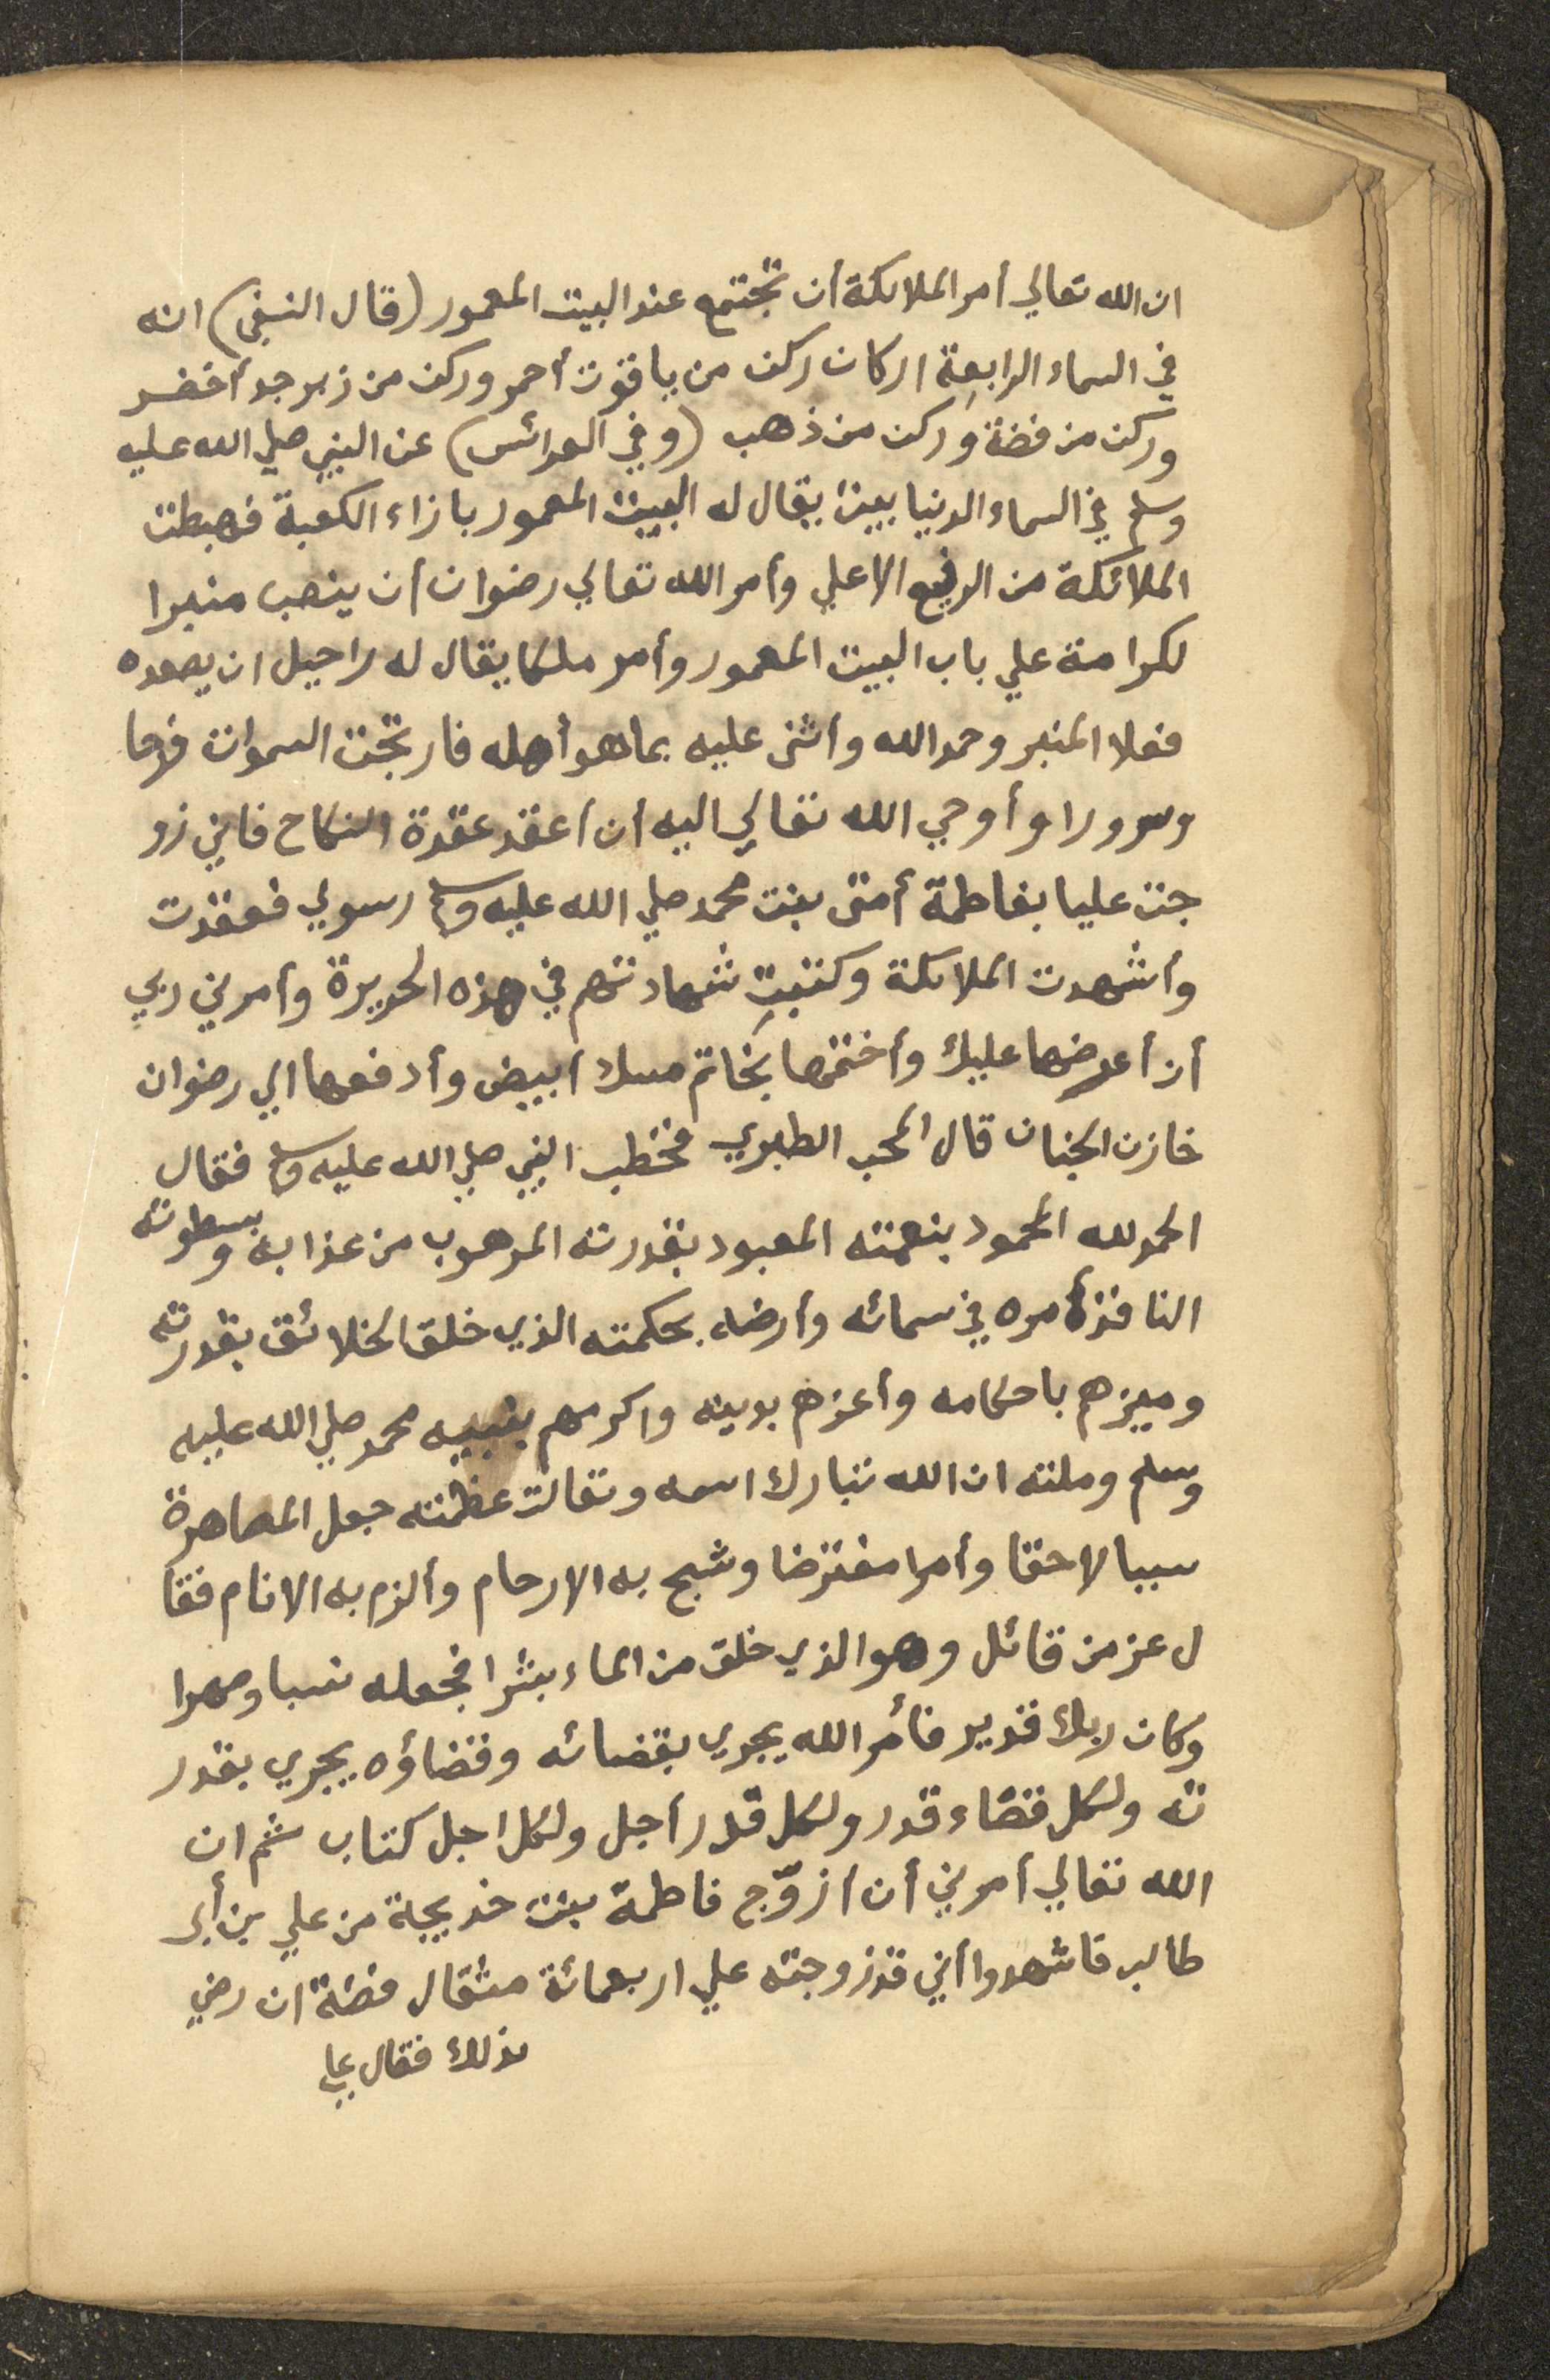 ان الله تعالي أمر الملائكة أن تجتمع عند البيت المعمور (قال النسفي) انه
في السماء الرابعة اركان ركن من ياقوت أحمر وركن من زبرجد أخضر
وركن من فضة وركن من ذهب (وفي العرائس) عن النبي صلي الله عليه
وسلم في السماء الدنيا بيت يقال له البيت المعمور بازاء الكعبة فهبطت
الملائكة من الرفيع الاعلي وأمر الله تعالي رضوان أن ينصب منبرا
لكرامة علي باب البيت المعمور وأمر ملكا يقال له راحيل ان يصعده
فعلا المنبر وحمد الله وأثنى عليه بما هو أهله فارتجت السموات فرحا
وسرورا وأوحي الله تعالي اليه أن أعقد عقدة النكاح فاني زو
جت عليا بفاطمة أمتى بنت محمد صلي الله عليه وسلم رسولي فعقدت
وأشهدت الملائكة وكتبت شهادتهم في هذه الحريرة وأمرني ربي
أن أعرضها عليك وأختمها بخاتم مسك أبيض وأدفعها الي رضوان
خازن الجنان قال المحب الطبري فخطب النبي صلي الله عليه وسلم فقال
الحمد لله المحمود بنعمته المعبود بقدرته المرهوب من عذابه وسطوته
النافذ أمره في سمائه وأرضه بحكمته الذي خلق الخلائق بقدرته
وميزهم باحكامه وأعزهم بدينه واكرمهم بنبيه محمد صلي الله عليه
وسلم وملته ان الله تبارك اسمه وتعالت عظمته جعل المصاهرة
سببا لاحقا وأمرا مفترضا وشبح به الارحام وألزم به الانام فقا
ل عز من قائل وهو الذي خلق من الماء بشرا فجعله نسبا وصهرا
وكان ربك قدير فأمر الله يجري بقضائه وقضاؤه يجري بقدر
ته ولكل قضاء قدر ولكل قدر أجل ولكل اجل كتاب ثم ان
الله تعالي أمرني أن أزوّج فاطمة بنت خديجة من علي بن أبي
طالب فاشهدوا أني قد زوجته علي اربعمائة مثقال فضة ان رضي
بذلك فقال علي